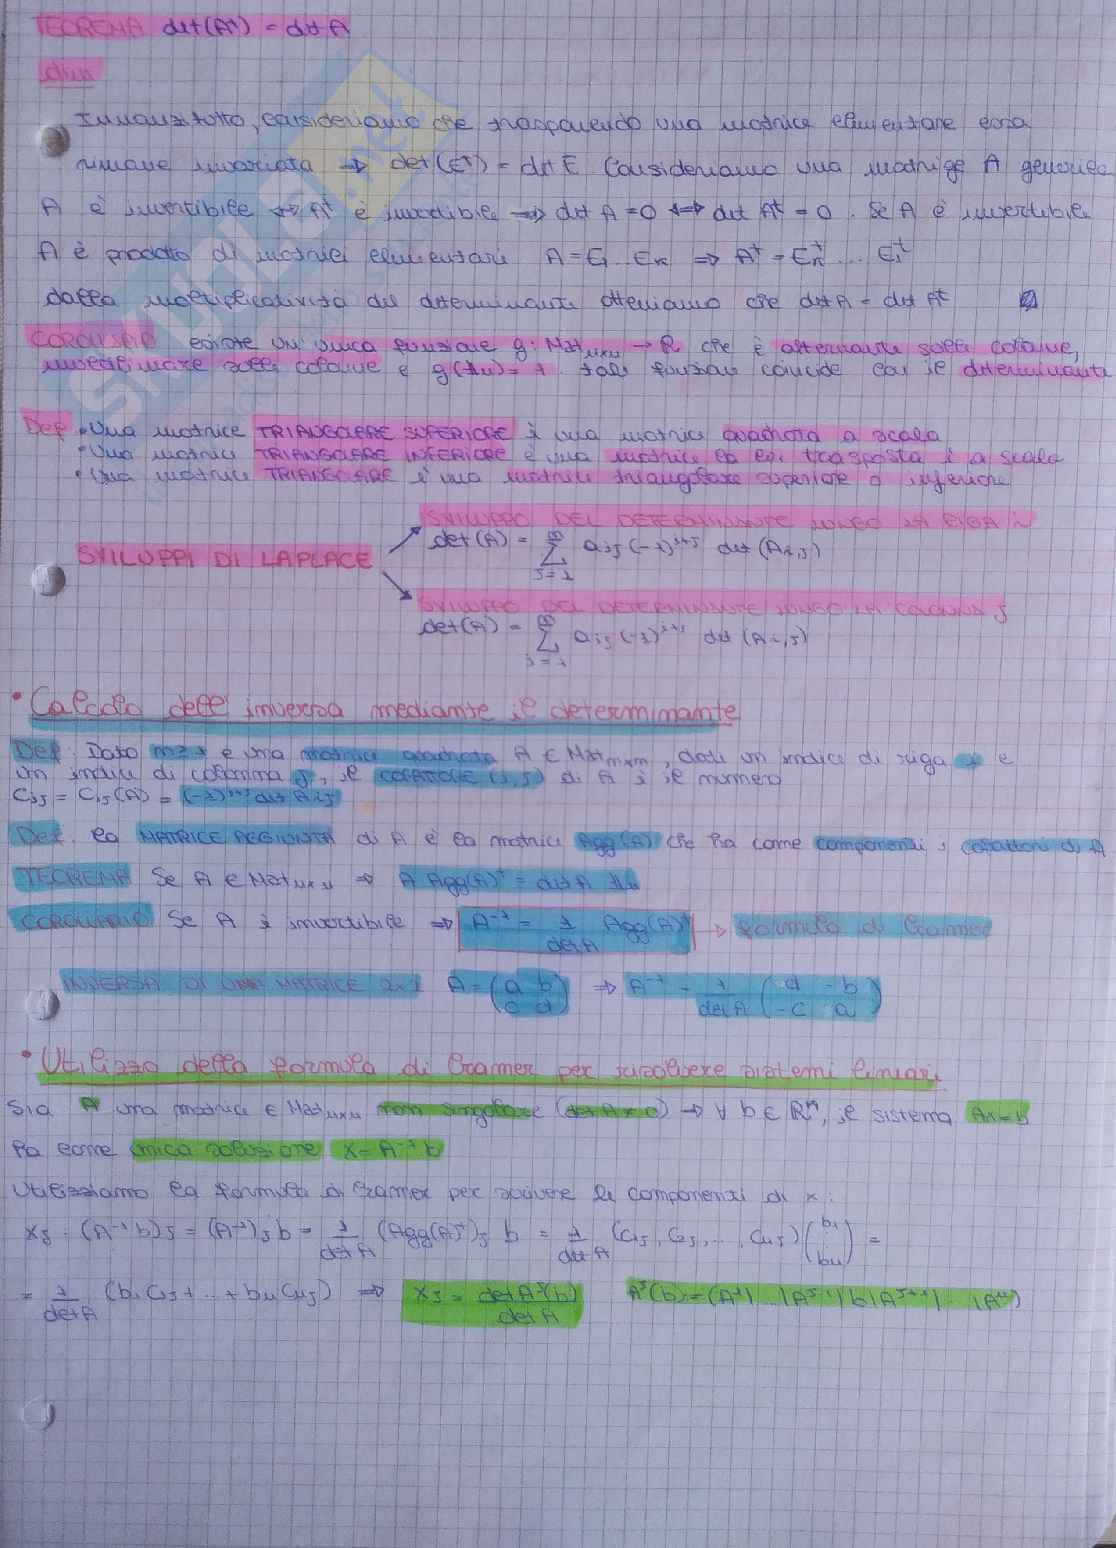 TEOREMA det(Aᵗ) = det A
dim
Innanzitutto, consideriamo che trasponendo una matrice elementare essa
rimane invariata ⇒ det(Eᵗ) = det E Consideriamo una matrice A generica
A è invertibile ⇔ Aᵗ è invertibile ⇒ det A = 0 ⇔ det Aᵗ = 0. Se A è invertibile
A è prodotto di matrici elementari A = E₁...Eₙ ⇒ Aᵗ = Eₙᵗ ... E₁ᵗ
dalla moltiplicatività del determinante otteniamo che det A = det Aᵗ
COROLLARIO esiste un'unica funzione g: Matₙₓₙ → R che è alternante sulle colonne,
multilineare sulle colonne e g(1ₙ) = 1. tale funzione coincide con il determinante
Def • Una matrice TRIANGOLARE SUPERIORE è una matrice quadrata a scala
• Una matrice TRIANGOLARE INFERIORE è una matrice la cui trasposta è a scala
• Una matrice TRIANGOLARE è una matrice triangolare superiore o inferiore
SVILUPPO DEL DETERMINANTE LUNGO LA RIGA i
SVILUPPI DI LAPLACE
det(A) = ∞ Σ j=1 aij (-1)ⁱ⁺ʲ det(Ai,j)
SVILUPPO DEL DETERMINANTE LUNGO LA COLONNA j
det(A) = ∞ Σ aij (-1)ⁱ⁺ʲ det(Ai,j)
• Calcolo dell'inversa mediante il determinante
Def: Dato n≥1 e una matrice quadrata A ∈ Matₙₓₙ, dati un indice di riga i e
un indice di colonna j, il cofattore (i,j) di A è il numero
Cij = Cij(A) = (-1)ⁱ⁺ʲ det Aij
Def. la MATRICE AGGIUNTA di A è la matrice Agg(A) che ha come componenti i cofattori di A
TEOREMA Se A ∈ Matₙₓₙ ⇒ A Agg(A)ᵗ = det A 1ₙ
COROLLARIO Se A è invertibile ⇒ A⁻¹ = 1/det A Agg(A)ᵗ → formula di Cramer
INVERSA DI UNA MATRICE 2x2 A = (a b c d) ⇒ A⁻¹ = 1/det A (d -b -c a)
• Utilizzo della formula di Cramer per risolvere sistemi lineari
Sia A una matrice ∈ Matₙₓₙ non singolare (det A ≠ 0) → ∀ b ∈ Rⁿ, il sistema Ax=b
ha come unica soluzione x = A⁻¹b
Utilizziamo la formula di Cramer per scrivere le componenti di x:
xj : (A⁻¹b)j = (A⁻¹)j b = 1/det A (Agg(A)ᵗ)j b = 1/det A (C1j, C2j, ..., Cnj) (b1 ⋮ bn) =
= 1/det A (b1 C1j + ... + bn Cnj) ⇒ xj = det Aʲ(b)/det A Aʲ(b) = (A¹|...|Aʲ⁻¹|b|Aʲ⁺¹|...|Aⁿ)